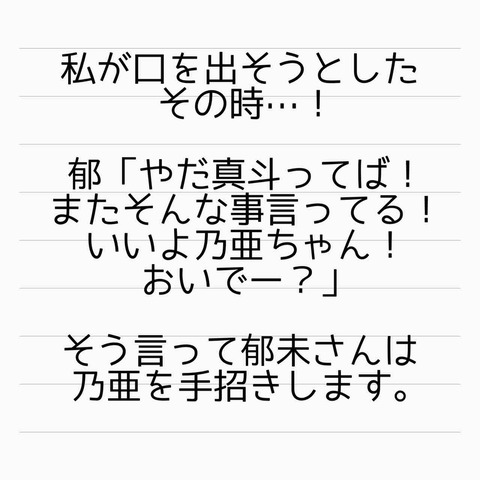 私が口を出そうとした
その時…！
郁「やだ真斗ってば！
またそんな事言ってる！
いいよ乃亜ちゃん！
おいでー？」
そう言って郁未さんは
乃亜を手招きします。